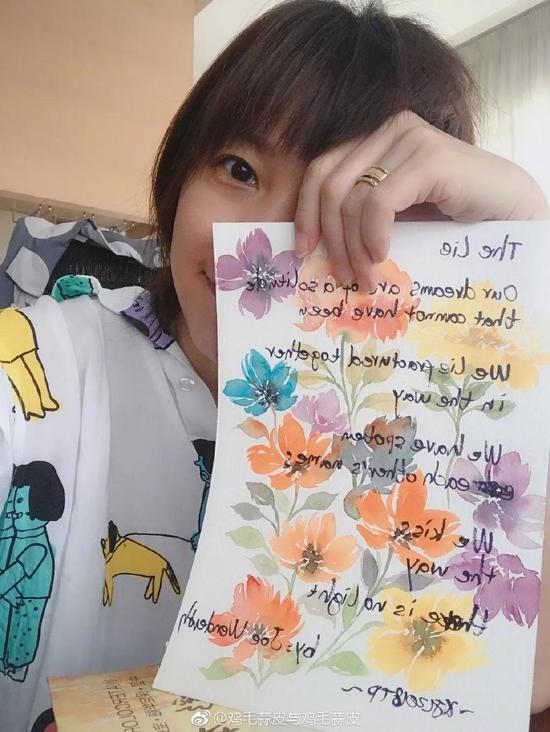 The Lie
Our dreams are of a solitude
that cannot have been
We lie fractured together
in the way
We have spoken
each other's names
We kiss
the way
there is no light
by: Joe Wenderoth
@鸡毛蒜皮与鸡毛蒜皮